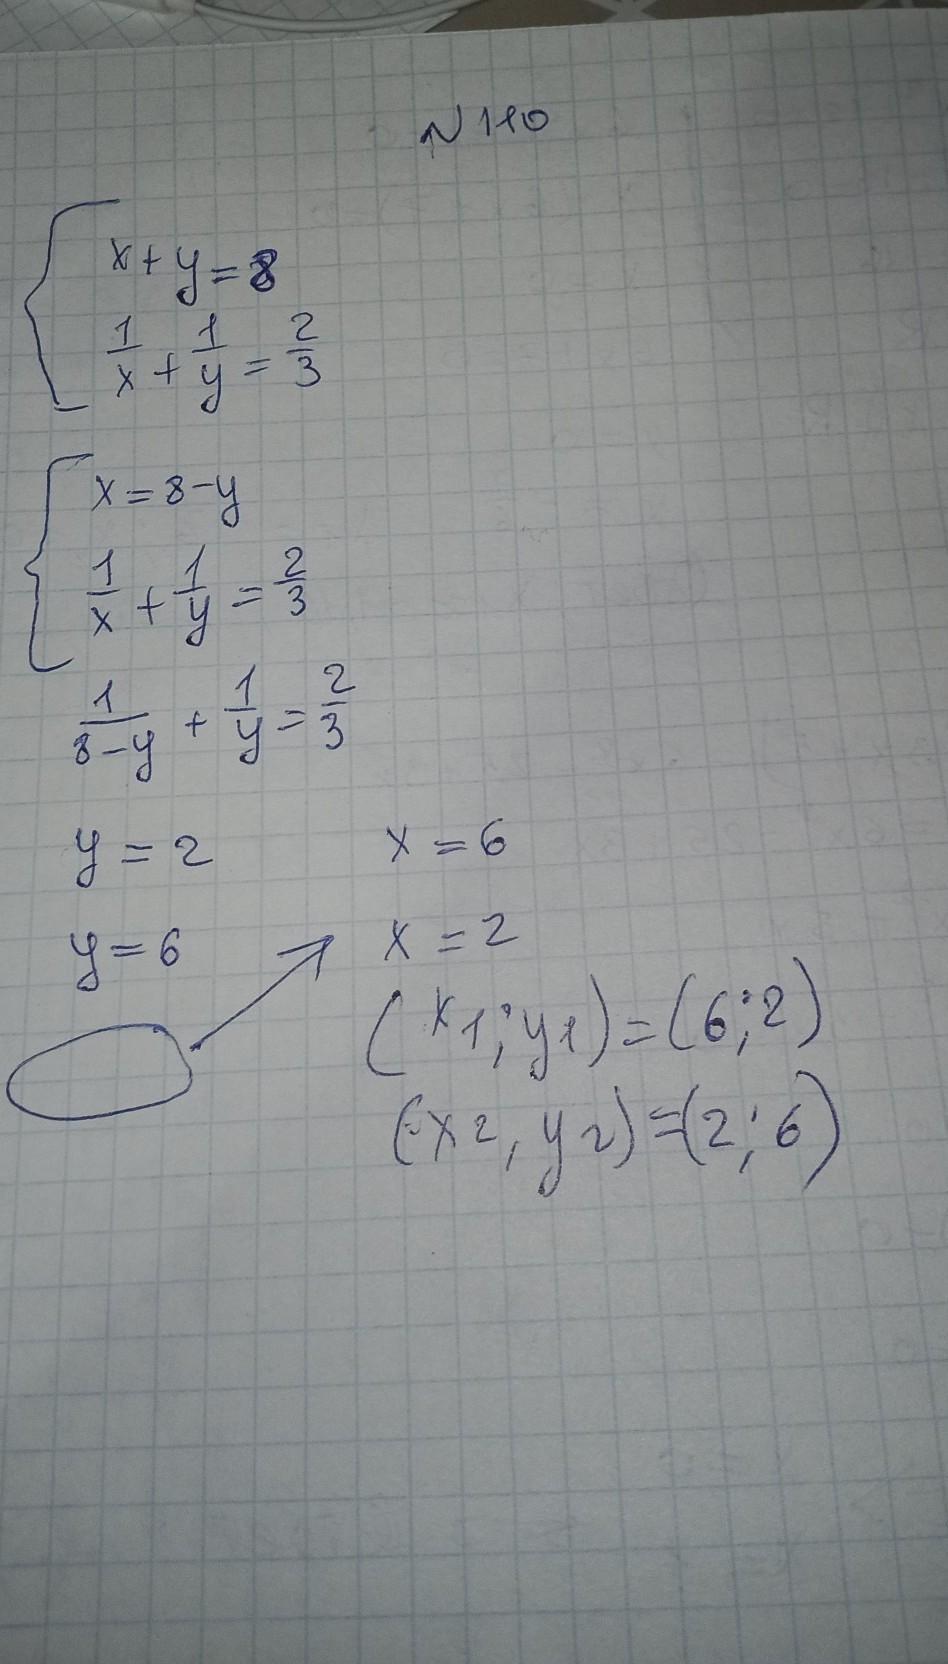 N 110
x + y = 8
1/x + 1/y = 2/3
x = 8 - y
1/x + 1/y = 2/3
1/(8 - y) + 1/y = 2/3
y = 2 x = 6
y = 6 x = 2
(x1; y1) = (6; 2)
(x2, y2) = (2; 6)